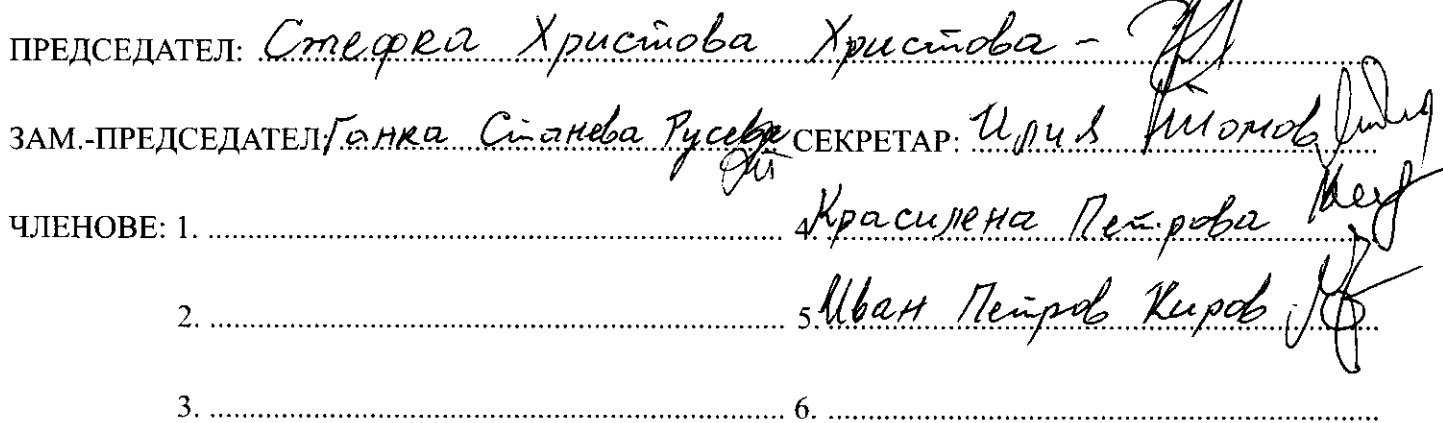 ПРЕДСЕДАТЕЛ: Стефка Христова Христова -
ЗАМ.-ПРЕДСЕДАТЕЛ: Ганка Станева Русева СЕКРЕТАР: Илия Томов
ЧЛЕНОВЕ: 1. 4. Красилена Петрова
2. 5. Иван Петров Киров
3. 6.